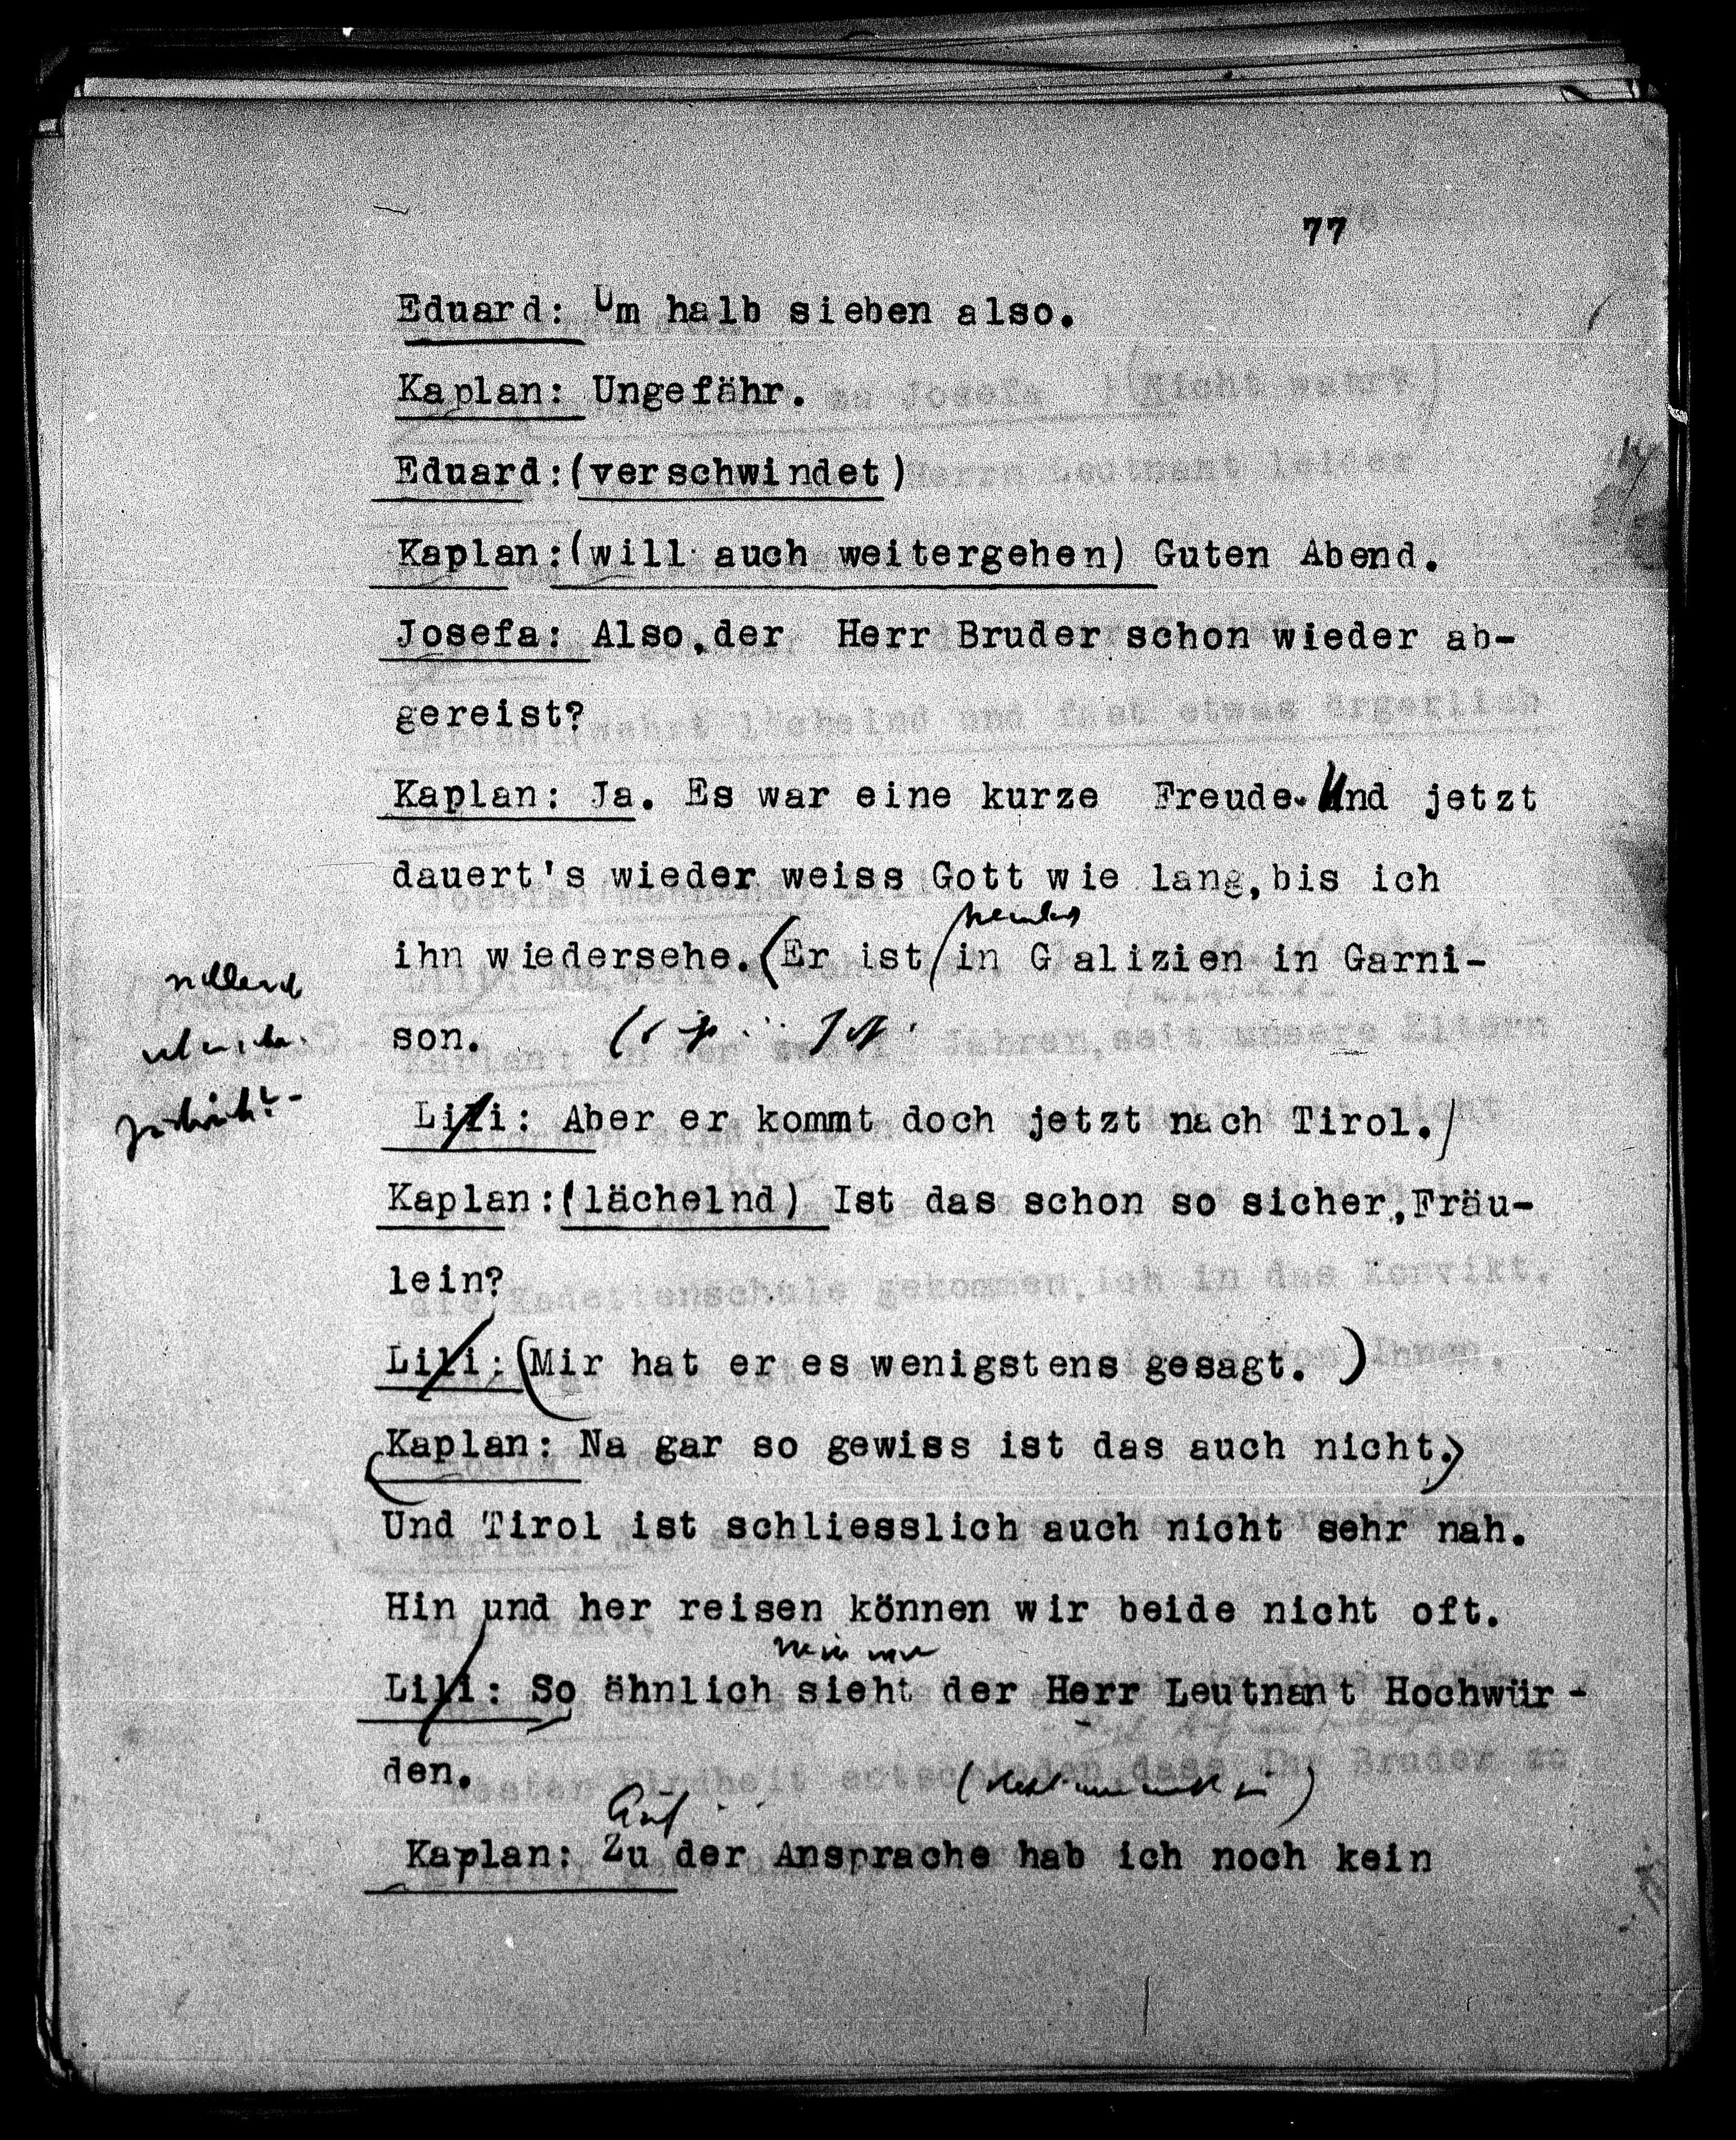 77
Eduard: Um halb sieben also.
Kaplan: Ungefähr.
Eduard:(verschwindet)
Kaplan:(will auch weitergehen) Guten Abend.
Josefa: Also,der Herr Bruder schon wieder ab-
gereist?
Kaplan: Ja. Es war eine kurze Freude. Und jetzt
dauert's wieder weiss Gott wie lang,bis ich
ihn wiedersehe.(Er ist/in Galizien in Garni-
son.
Lili: Aber er kommt doch jetzt nach Tirol./
Kaplan:(lächelnd) Ist das schon so sicher,Fräu-
lein?
Lili:(Mir hat er es wenigstens gesagt. )
(Kaplan: Na gar so gewiss ist das auch nicht.)
Und Tirol ist schliesslich auch nicht sehr nah.
Hin und her reisen können wir beide nicht oft.
Lili: So ähnlich sieht der Herr Leutnant Hochwür-
den.
Auf
Kaplan: Zu der Ansprache hab ich noch kein